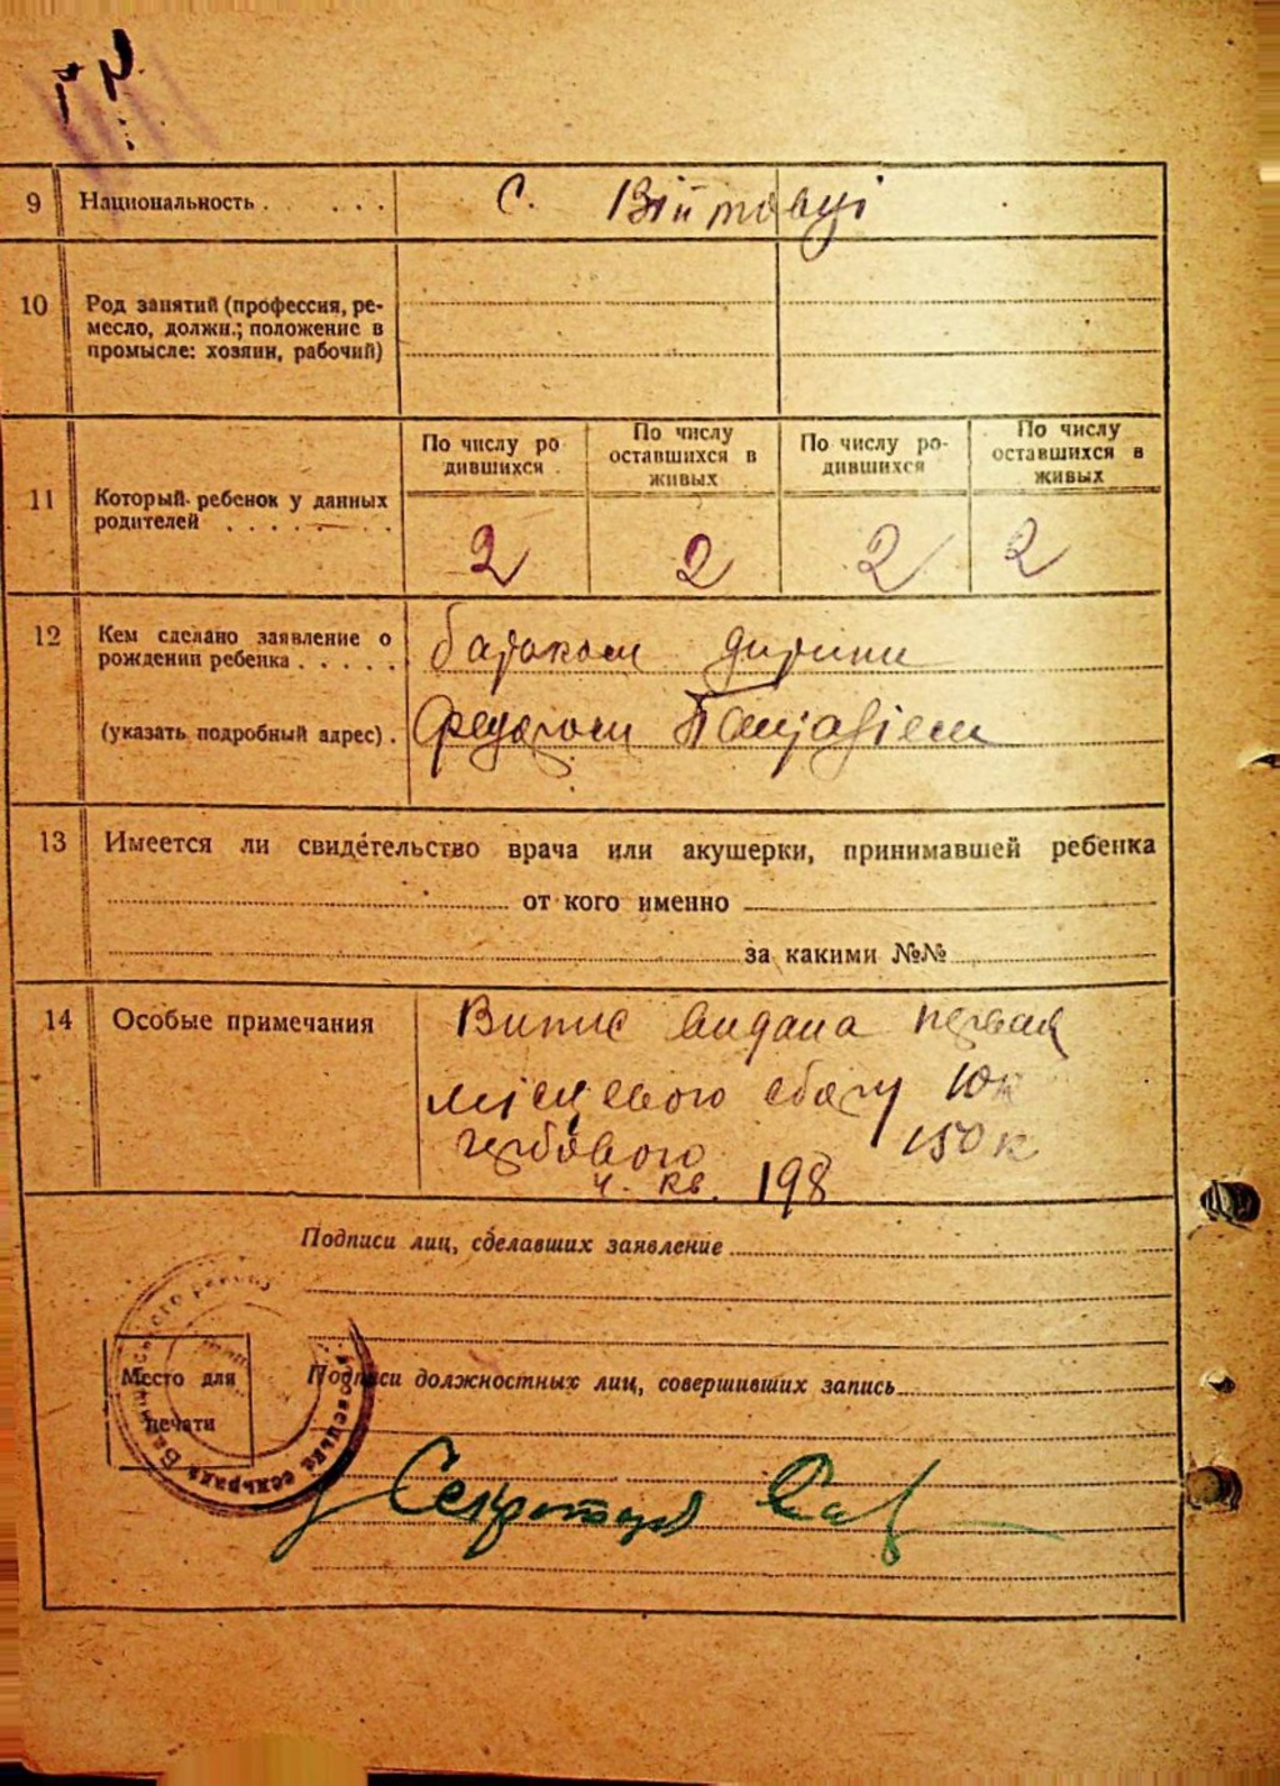 9 Национальность . . . . . С. Війтовці
10 Род занятий (профессия, ре-
месло, должн.; положение в
промысле: хозяин, рабочий)
11 Который ребенок у данных
родителей . . . . . . . .
По числу ро
дившихся .
По числу
оставшихся в
живых
По числу ро-
дившихся
По числу
оставшихся в
живых
2 2 2 2
12 Кем сделано заявление о
рождении ребенка . . . . . батьком дитини
(указать подробный адрес) . Федором
13 Имеется ли свидетельство врача или акушерки, принимавшей ребенка
от кого именно
за какими №№
14 Особые примечания
Випис видана первая
місцевого сбору 10к
гербового 150к
ч. кв. 198
Подписи лиц, сделавших заявление
Место для
печати
Подписи должностных лиц, совершивших запись
сельрада
Секретарь